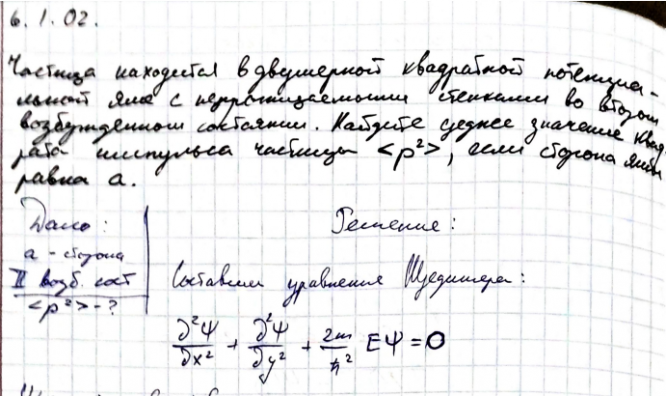 6.1.02.
Частица находится в двумерной квадратной потенциа-
льной яме с непроницаемыми стенками во втором
возбужденном состоянии. Найдите среднее значение квад
рата импульса частицы <p²>, если сторона ямы
равна a.
Дано: Решение:
a - сторона
II возб. сост Составим уравнения Шредингера:
<p²> - ?
∂²Ψ/∂x² + ∂²Ψ/∂y² + 2m/ħ² EΨ = 0